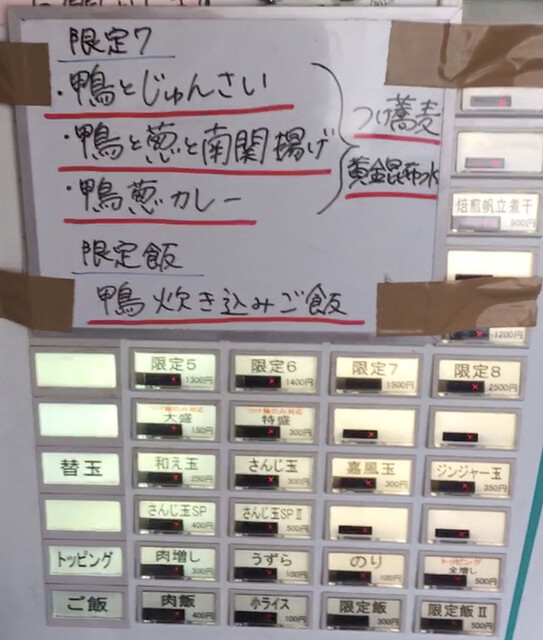 限定7
・鴨とじゅんさい
・鴨と葱と南関揚げ
・鴨葱カレー
つけ蕎麦
黄金昆布水
限定飯
鴨炊き込みご飯
焙煎帆立煮干
900円
1200円
限定5 1300円
限定6 1400円
限定7 1500円
限定8 2500円
つけ麺のみ対応
大盛 150円
つけ麺のみ対応
特盛 300円
替玉
和え玉 250円
さんじ玉 300円
嘉風玉 300円
ジンジャー玉 350円
さんじ玉SP 400円
さんじ玉SPⅡ 500円
トッピング
肉増し 300円
うずら 100円
のり 100円
トッピング
全増し 500円
ご飯
肉飯 400円
小ライス 100円
限定飯 300円
限定飯Ⅱ 500円